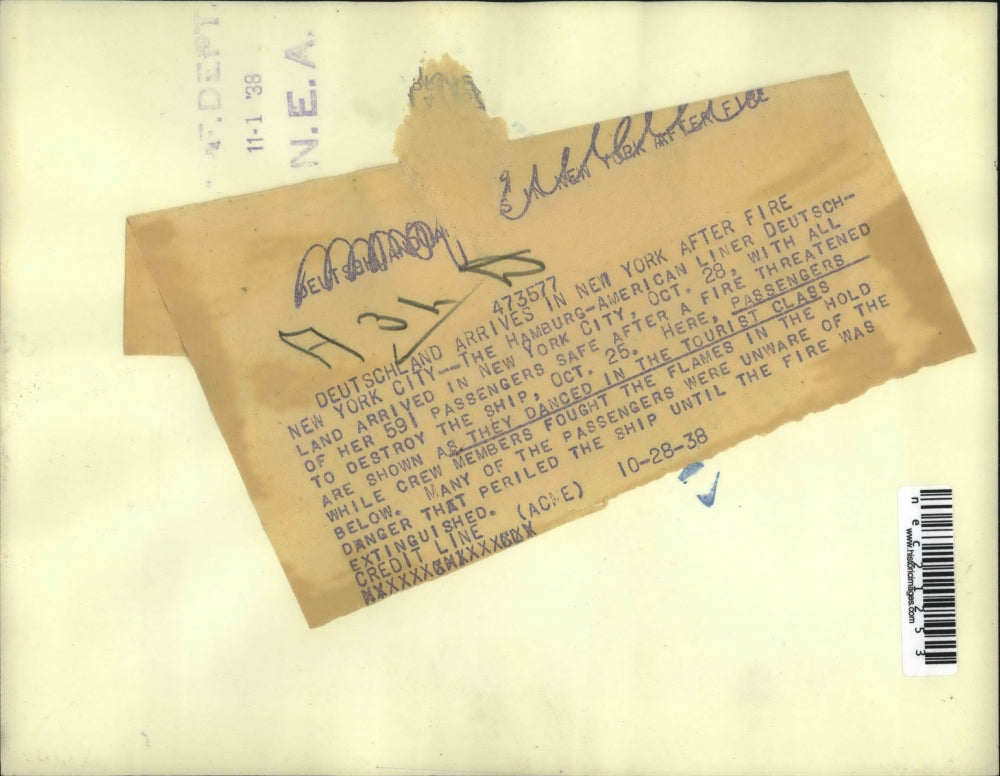 DEPT.
11-1 '38
N.E.A.
NEW YORK AFTER FIRE
DEUTSCHLAND
A 3 4
473577
DEUTSCHLAND ARRIVES IN NEW YORK AFTER FIRE
NEW YORK CITY--THE HAMBURG-AMERICAN LINER DEUTSCH-
LAND ARRIVED IN NEW YORK CITY, OCT. 28, WITH ALL
OF HER 591 PASSENGERS SAFE AFTER A FIRE THREATENED
TO DESTROY THE SHIP, OCT. 25. HERE, PASSENGERS
ARE SHOWN AS THEY DANCED IN THE TOURIST CLASS
WHILE CREW MEMBERS FOUGHT THE FLAMES IN THE HOLD
BELOW. MANY OF THE PASSENGERS WERE UNWARE OF THE
DANGER THAT PERILED THE SHIP UNTIL THE FIRE WAS
EXTINGUISHED.
CREDIT LINE (ACME) 10-28-38
nec21253
www.historicimages.com